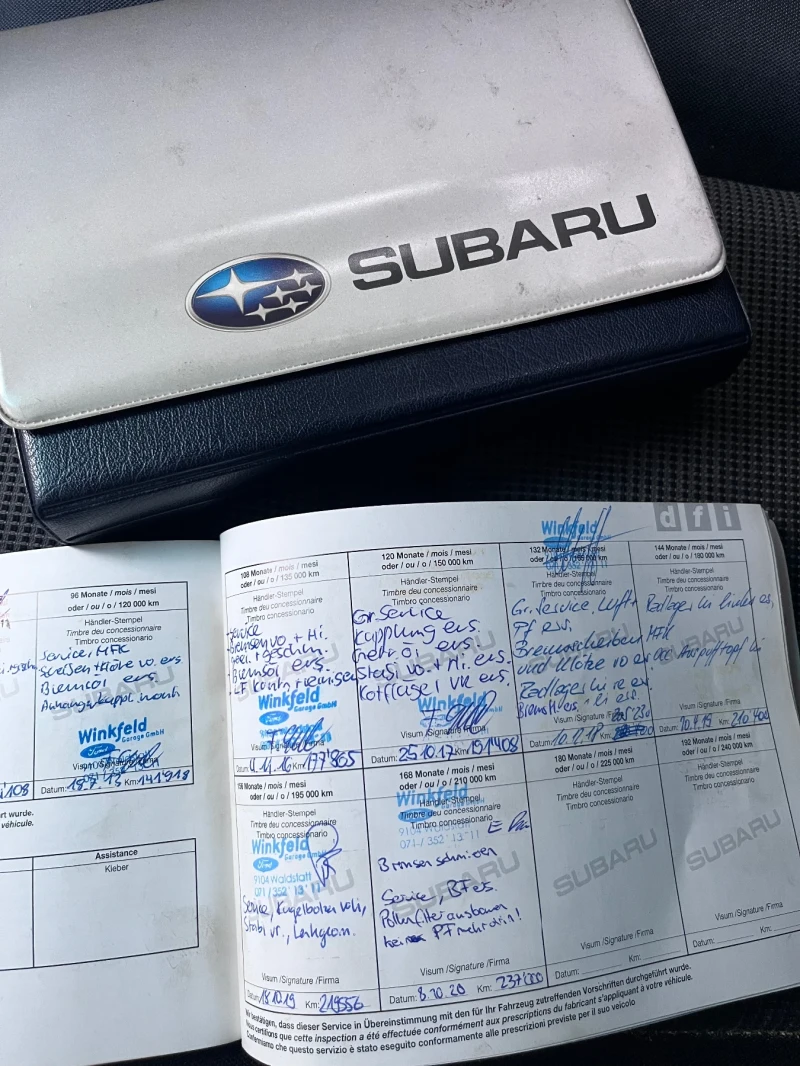 SUBARU
dfi
96 Monate / mois / mesi
oder / ou / o / 120 000 km
Händler-Stempel
Timbre du concessionnaire
Timbro concessionario
Service, MFK
Scheiben + Klötze vo. ers.
Bremsöl ers.
Winkfeld
Garage GmbH
Ford
Visum /Signature /Firma
Datum: 18.7.15 Km: 141'918
108 Monate / mois / mesi
oder / ou / o / 135 000 km
Händler-Stempel
Timbre du concessionnaire
Timbro concessionario
Service
Bremsen vo. + Hi.
Bremsöl ers.
Winkfeld
Garage GmbH
Ford
Visum /Signature /Firma
Datum: 4.11.16 Km: 177'865
120 Monate / mois / mesi
oder / ou / o / 150 000 km
Händler-Stempel
Timbre du concessionnaire
Timbro concessionario
Gr. Service
Kupplung ers.
Getr. öl ers.
Stasi vo. + Hi. ers.
ers.
Winkfeld
Garage GmbH
Visum /Signature /Firma
Datum: 25.10.17 Km: 191'408
Winkfeld
132 Monate / mois / mesi
oder / ou / o / 165 000 km
Händler-Stempel
Timbre du concessionnaire
Timbro concessionario
Gr. Service, Luft +
Pf ers.
Bremsscheiben
und Klötze vo ers
Radlager hi re ers.
Visum /Signature /Firma
Datum:
144 Monate / mois / mesi
oder / ou / o / 180 000 km
Radlager hi links ers,
MFK
Auspufftopf hi
SUBARU
Visum /Signature /Firma
Datum: 10.4.19 Km: 210'400
oder / ou / o / 195 000 km
Händler-Stempel
Timbre du concessionnaire
Timbro concessionario
Winkfeld
Garage GmbH
Ford
9104 Waldstatt
071 / 352 13 11
SUBARU
Service, Kugelbolzen
Stabi vr.,
Visum /Signature /Firma
Datum: 18.10.19 Km: 219556
168 Monate / mois / mesi
oder / ou / o / 210 000 km
Händler-Stempel
Timbre du concessionnaire
Timbro concessionario
Winkfeld
9104 Waldstatt
071 / 352 13 11
Bremsen schmieren
SUBARU
Service, BF ers.
Pollenfilter ausbauen
kein PF mehr drin!
Visum /Signature /Firma
Datum: 8.10.20 Km: 237'000
180 Monate / mois / mesi
oder / ou / o / 225 000 km
Händler-Stempel
Timbre du concessionnaire
Timbro concessionario
SUBARU
Visum /Signature /Firma
Datum: Km:
192 Monate / mois / mesi
oder / ou / o / 240 000 km
Händler-Stempel
Timbre du concessionnaire
Timbro concessionario
SUBARU
Visum /Signature /Firma
Datum: Km:
Assistance
Kleber
véhicule.
Wir bestätigen, dass dieser Service in Übereinstimmung mit den für Ihr Fahrzeug zutreffenden Vorschriften durchgeführt wurde.
Nous certifions que cette inspection a été effectuée conformément aux prescriptions du fabricant s'appliquant à votre véhicule.
Confermiamo che questo servizio è stato eseguito conformemente alle prescrizioni previste per il suo veicolo